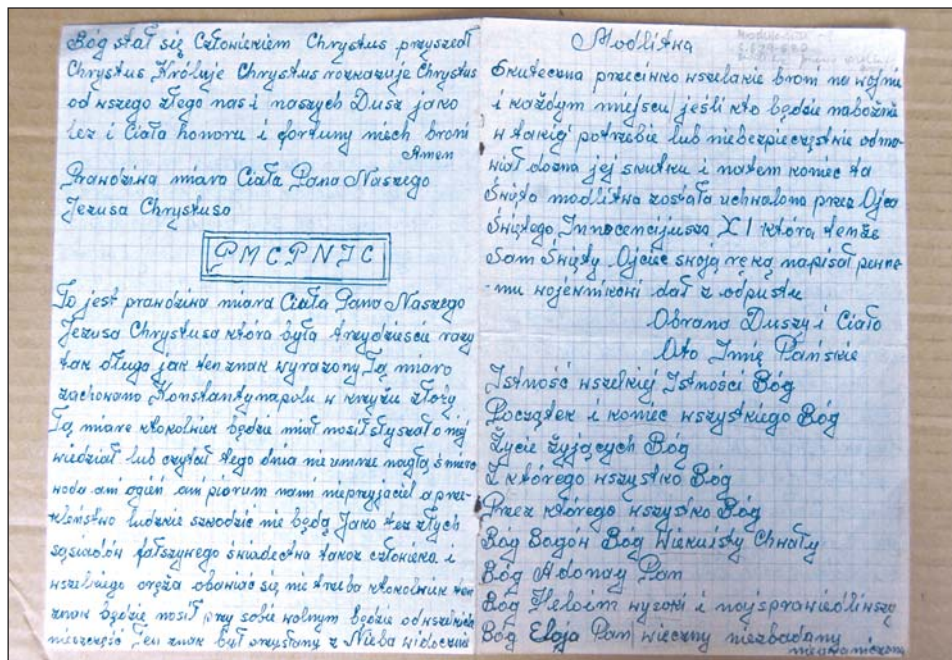 Bóg stał się Człowiekiem Chrystus przyszedł
Chrystus Króluje Chrystus rozkazuje Chrystus
od wszego złego nas i naszych Dusz jako
tez i Ciała honoru i fortuny niech broni
Amen
Prawdziwa miara Ciała Pana Naszego
Jezusa Chrystusa
PMCPNJC
To jest prawdziwa miara Ciała Pana Naszego
Jezusa Chrystusa która była trzydzieści razy
tak długa jak ten znak wyrazony Tą miarą
zachowano Konstantynapolu w krzyżu złoty
Tą miare ktokolwiek będzie miał nosił słyszał o niej
wiedział lub czytał tego dnia nie umrze nagłą śmierc
woda ani ogień ani piorum nani nieprzyjaciel a prze-
kleństwo ludzkie szkodzic nie będą Jako tez złych
sąsiadów fałszywego świadectwa takoz człowieka i
wszelkiego oręża obawiać się nie trzeba ktokolwiek ten
znak będzie nosił przy sobie wolnym będzie od wszelkich
nieszczęść Ten znak był przysłany z Nieba widocznie
Modlitwa
Skuteczna przeciwko wszelakie broni na wojnie
i każdym miejscu jeśli kto będzie nabożnie
w takig potrzebie lub niebezpieczęstwie odma-
wiał dozna jej skutku i natem koniec ta
Święta modlitwa została uchwalona przez Ojca
Świętego Innocencijusza XI która tenże
Sam Święty Ojciec swoją ręką napisał pewne-
-mu wojennikowi dał z odpustu
Obrana Duszy i Ciało
Oto Imię Pańskie
Istność wszelkiej Istności Bóg
Początek i koniec wszystkiego Bóg
Życie żyjących Bóg
Z którego wszystko Bóg
Przez którego wszystko Bóg
Bóg Bogów Bóg Wiekuisty Chwały
Bóg Adonay Pan
Bóg Heloim wysoki i najsprawiedliwszy
Bóg Eloja Pan wieczny niezbadany
nieograniczony